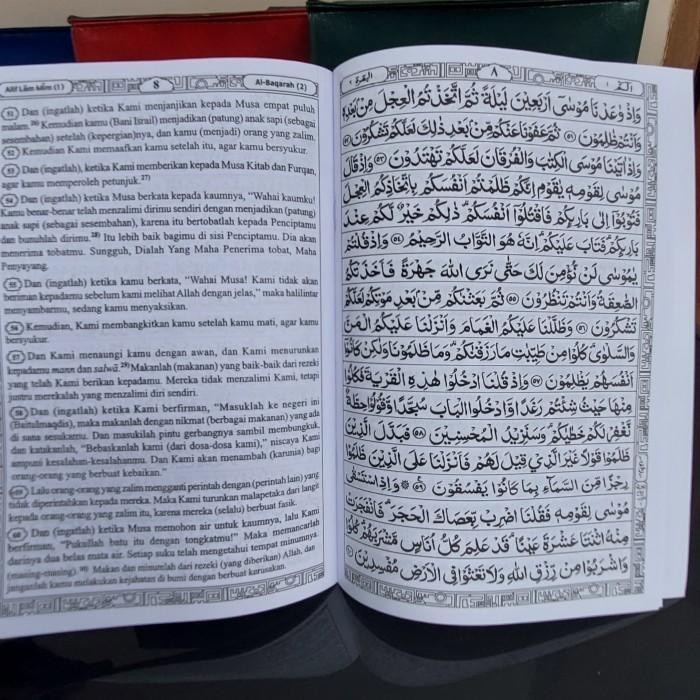 Alif Lām Mīm (1)
8
Al-Baqarah (2)
51 Dan (ingatlah) ketika Kami menjanjikan kepada Musa empat puluh
malam. 26) Kemudian kamu (Bani Israil) menjadikan (patung) anak sapi (sebagai
sesembahan) setelah (kepergian)nya, dan kamu (menjadi) orang yang zalim.
52 Kemudian Kami memaafkan kamu setelah itu, agar kamu bersyukur.
53 Dan (ingatlah), ketika Kami memberikan kepada Musa Kitab dan Furqan,
agar kamu memperoleh petunjuk.27)
54 Dan (ingatlah) ketika Musa berkata kepada kaumnya, "Wahai kaumku!
Kamu benar-benar telah menzalimi dirimu sendiri dengan menjadikan (patung)
anak sapi (sebagai sesembahan), karena itu bertobatlah kepada Penciptamu
dan bunuhlah dirimu.28) Itu lebih baik bagimu di sisi Penciptamu. Dia akan
menerima tobatmu. Sungguh, Dialah Yang Maha Penerima tobat, Maha
Penyayang.
55 Dan (ingatlah) ketika kamu berkata, "Wahai Musa! Kami tidak akan
beriman kepadamu sebelum kami melihat Allah dengan jelas," maka halilintar
menyambarmu, sedang kamu menyaksikan.
56 Kemudian, Kami membangkitkan kamu setelah kamu mati, agar kamu
bersyukur.
57 Dan Kami menaungi kamu dengan awan, dan Kami menurunkan
kepadamu mann dan salwā.29) Makanlah (makanan) yang baik-baik dari rezeki
yang telah Kami berikan kepadamu. Mereka tidak menzalimi Kami, tetapi
justru merekalah yang menzalimi diri sendiri.
58 Dan (ingatlah) ketika Kami berfirman, "Masuklah ke negeri ini
(Baitulmaqdis), maka makanlah dengan nikmat (berbagai makanan) yang ada
di sana sesukamu. Dan masukilah pintu gerbangnya sambil membungkuk,
dan katakanlah, "Bebaskanlah kami (dari dosa-dosa kami)," niscaya Kami
ampuni kesalahan-kesalahanmu. Dan Kami akan menambah (karunia) bagi
orang-orang yang berbuat kebaikan."
59 Lalu orang-orang yang zalim mengganti perintah dengan (perintah lain) yang
tidak diperintahkan kepada mereka. Maka Kami turunkan malapetaka dari langit
kepada orang-orang yang zalim itu, karena mereka (selalu) berbuat fasik.
60 Dan (ingatlah) ketika Musa memohon air untuk kaumnya, lalu Kami
berfirman, "Pukullah batu itu dengan tongkatmu!" Maka memancarlah
darinya dua belas mata air. Setiap suku telah mengetahui tempat minumnya
(masing-masing). 30) Makan dan minumlah dari rezeki (yang diberikan) Allah, dan
janganlah kamu melakukan kejahatan di bumi dengan berbuat kerusakan.
البقرة ٢
٨
الٓمّٓ ١
وَاِذْ وٰعَدْنَا مُوْسٰٓى اَرْبَعِيْنَ لَيْلَةً ثُمَّ اتَّخَذْتُمُ الْعِجْلَ مِنْۢ بَعْدِهٖ
وَاَنْتُمْ ظٰلِمُوْنَ ٥١ ثُمَّ عَفَوْنَا عَنْكُمْ مِّنْۢ بَعْدِ ذٰلِكَ لَعَلَّكُمْ تَشْكُرُوْنَ ٥٢
وَاِذْ اٰتَيْنَا مُوْسَى الْكِتٰبَ وَالْفُرْقَانَ لَعَلَّكُمْ تَهْتَدُوْنَ ٥٣ وَاِذْ قَالَ
مُوْسٰى لِقَوْمِهٖ يٰقَوْمِ اِنَّكُمْ ظَلَمْتُمْ اَنْفُسَكُمْ بِاتِّخَاذِكُمُ الْعِجْلَ
فَتُوْبُوْٓا اِلٰى بَارِئِكُمْ فَاقْتُلُوْٓا اَنْفُسَكُمْۗ ذٰلِكُمْ خَيْرٌ لَّكُمْ عِنْدَ
بَارِئِكُمْۗ فَتَابَ عَلَيْكُمْۗ اِنَّهٗ هُوَ التَّوَّابُ الرَّحِيْمُ ٥٤ وَاِذْ قُلْتُمْ
يٰمُوْسٰى لَنْ نُّؤْمِنَ لَكَ حَتّٰى نَرَى اللّٰهَ جَهْرَةً فَاَخَذَتْكُمُ
الصّٰعِقَةُ وَاَنْتُمْ تَنْظُرُوْنَ ٥٥ ثُمَّ بَعَثْنٰكُمْ مِّنْۢ بَعْدِ مَوْتِكُمْ لَعَلَّكُمْ
تَشْكُرُوْنَ ٥٦ وَظَلَّلْنَا عَلَيْكُمُ الْغَمَامَ وَاَنْزَلْنَا عَلَيْكُمُ الْمَنَّ
وَالسَّلْوٰىۗ كُلُوْا مِنْ طَيِّبٰتِ مَا رَزَقْنٰكُمْۗ وَمَا ظَلَمُوْنَا وَلٰكِنْ كَانُوْٓا
اَنْفُسَهُمْ يَظْلِمُوْنَ ٥٧ وَاِذْ قُلْنَا ادْخُلُوْا هٰذِهِ الْقَرْيَةَ فَكُلُوْا
مِنْهَا حَيْثُ شِئْتُمْ رَغَدًا وَّادْخُلُوا الْبَابَ سُجَّدًا وَّقُوْلُوْا حِطَّةٌ
نَّغْفِرْ لَكُمْ خَطٰيٰكُمْۗ وَسَنَزِيْدُ الْمُحْسِنِيْنَ ٥٨ فَبَدَّلَ الَّذِيْنَ
ظَلَمُوْا قَوْلًا غَيْرَ الَّذِيْ قِيْلَ لَهُمْ فَاَنْزَلْنَا عَلَى الَّذِيْنَ ظَلَمُوْا
رِجْزًا مِّنَ السَّمَاۤءِ بِمَا كَانُوْا يَفْسُقُوْنَ ٥٩ وَاِذِ اسْتَسْقٰى
مُوْسٰى لِقَوْمِهٖ فَقُلْنَا اضْرِبْ بِّعَصَاكَ الْحَجَرَۗ فَانْفَجَرَتْ
مِنْهُ اثْنَتَا عَشْرَةَ عَيْنًاۗ قَدْ عَلِمَ كُلُّ اُنَاسٍ مَّشْرَبَهُمْۗ كُلُوْا
وَاشْرَبُوْا مِنْ رِّزْقِ اللّٰهِ وَلَا تَعْثَوْا فِى الْاَرْضِ مُفْسِدِيْنَ ٦٠